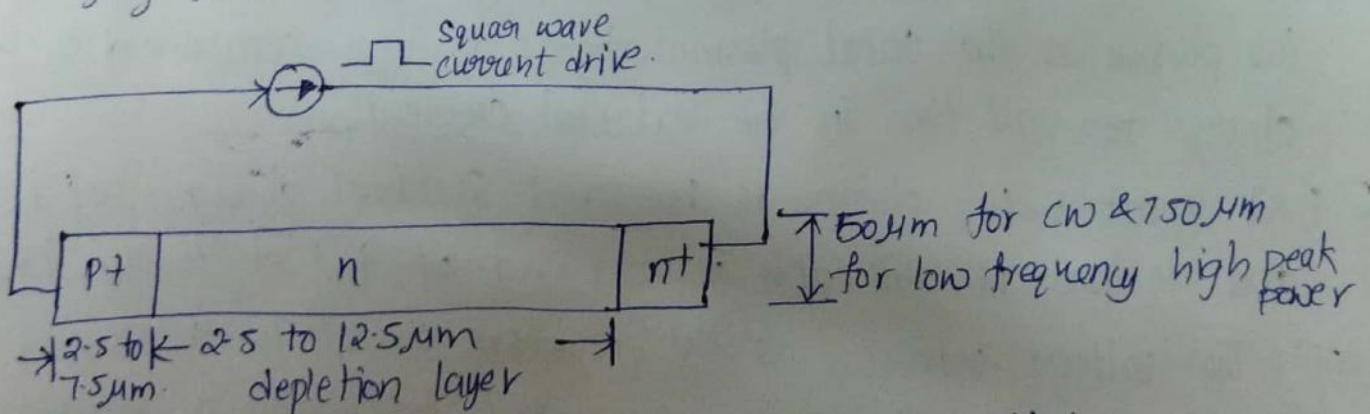 squar wave
current drive.
50μm for CW & 750μm
for low frequency high peak
power
p+
n
n+
2.5 to
7.5μm.
2.5 to 12.5μm
depletion layer